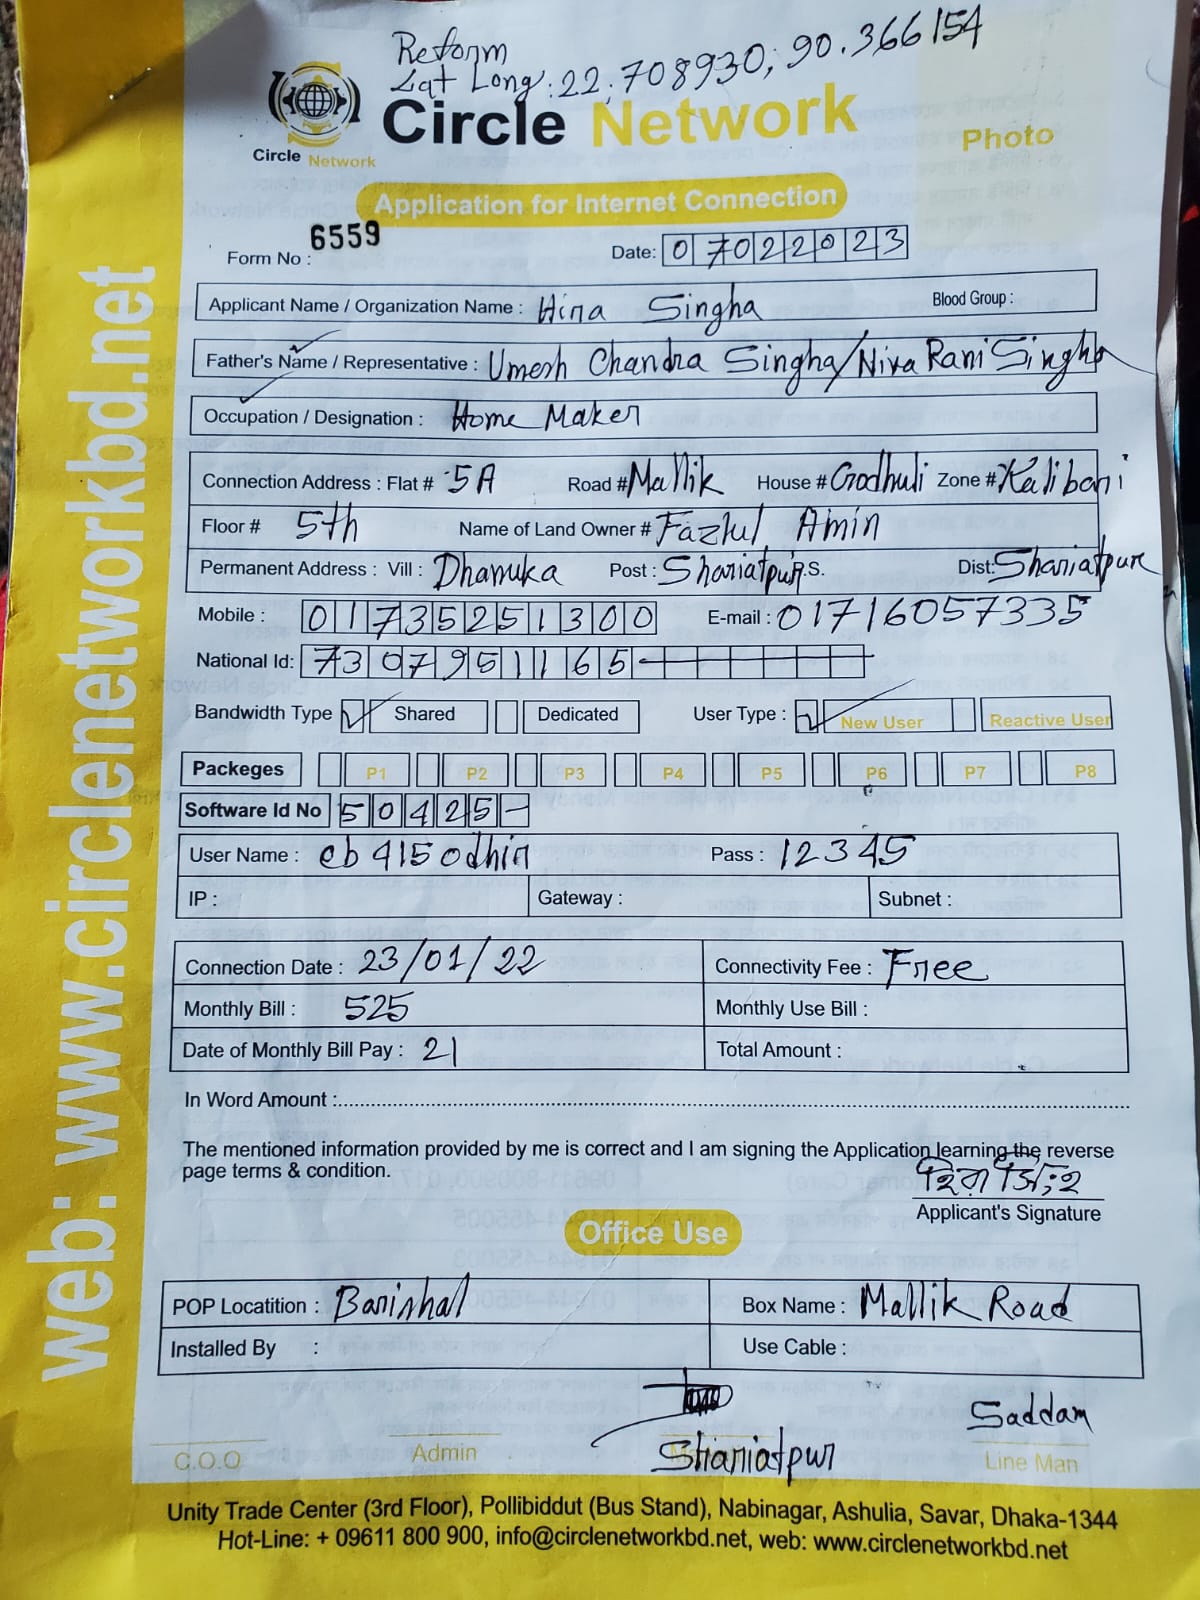 Reform
Lat Long: 22.708930; 90.366154
Circle Network
Circle Network
Photo
Application for Internet Connection
Form No : 6559
Date: 07022023
Applicant Name / Organization Name : Hira Singha Blood Group :
Father's Name / Representative : Umesh Chandra Singha/Nira Rani Singha
Occupation / Designation : Home Maker
Connection Address : Flat # 5A Road # Mallik House # Godhuli Zone # Kalibari
Floor # 5th Name of Land Owner # Fazlul Amin
Permanent Address : Vill : Dhanuka Post : Shariatpur P.S. Dist: Shariatpur
Mobile : 01735251300 E-mail : 01716057335
National Id: 7307951165
Bandwidth Type Shared Dedicated User Type : New User Reactive User
Packeges P1 P2 P3 P4 P5 P6 P7 P8
Software Id No 50425-
User Name : cb415odhir Pass : 12345
IP : Gateway : Subnet :
Connection Date : 23/01/22 Connectivity Fee : Free
Monthly Bill : 525 Monthly Use Bill :
Date of Monthly Bill Pay : 21 Total Amount :
In Word Amount :
The mentioned information provided by me is correct and I am signing the Application learning the reverse
page terms & condition.
হিরা সিংহ
Applicant's Signature
Office Use
POP Locatition : Barishal Box Name : Mallik Road
Installed By : Use Cable :
Saddam
Shariatpur
C.O.O Admin Line Man
Unity Trade Center (3rd Floor), Pollibiddut (Bus Stand), Nabinagar, Ashulia, Savar, Dhaka-1344
Hot-Line: + 09611 800 900, info@circlenetworkbd.net, web: www.circlenetworkbd.net
web: www.circlenetworkbd.net